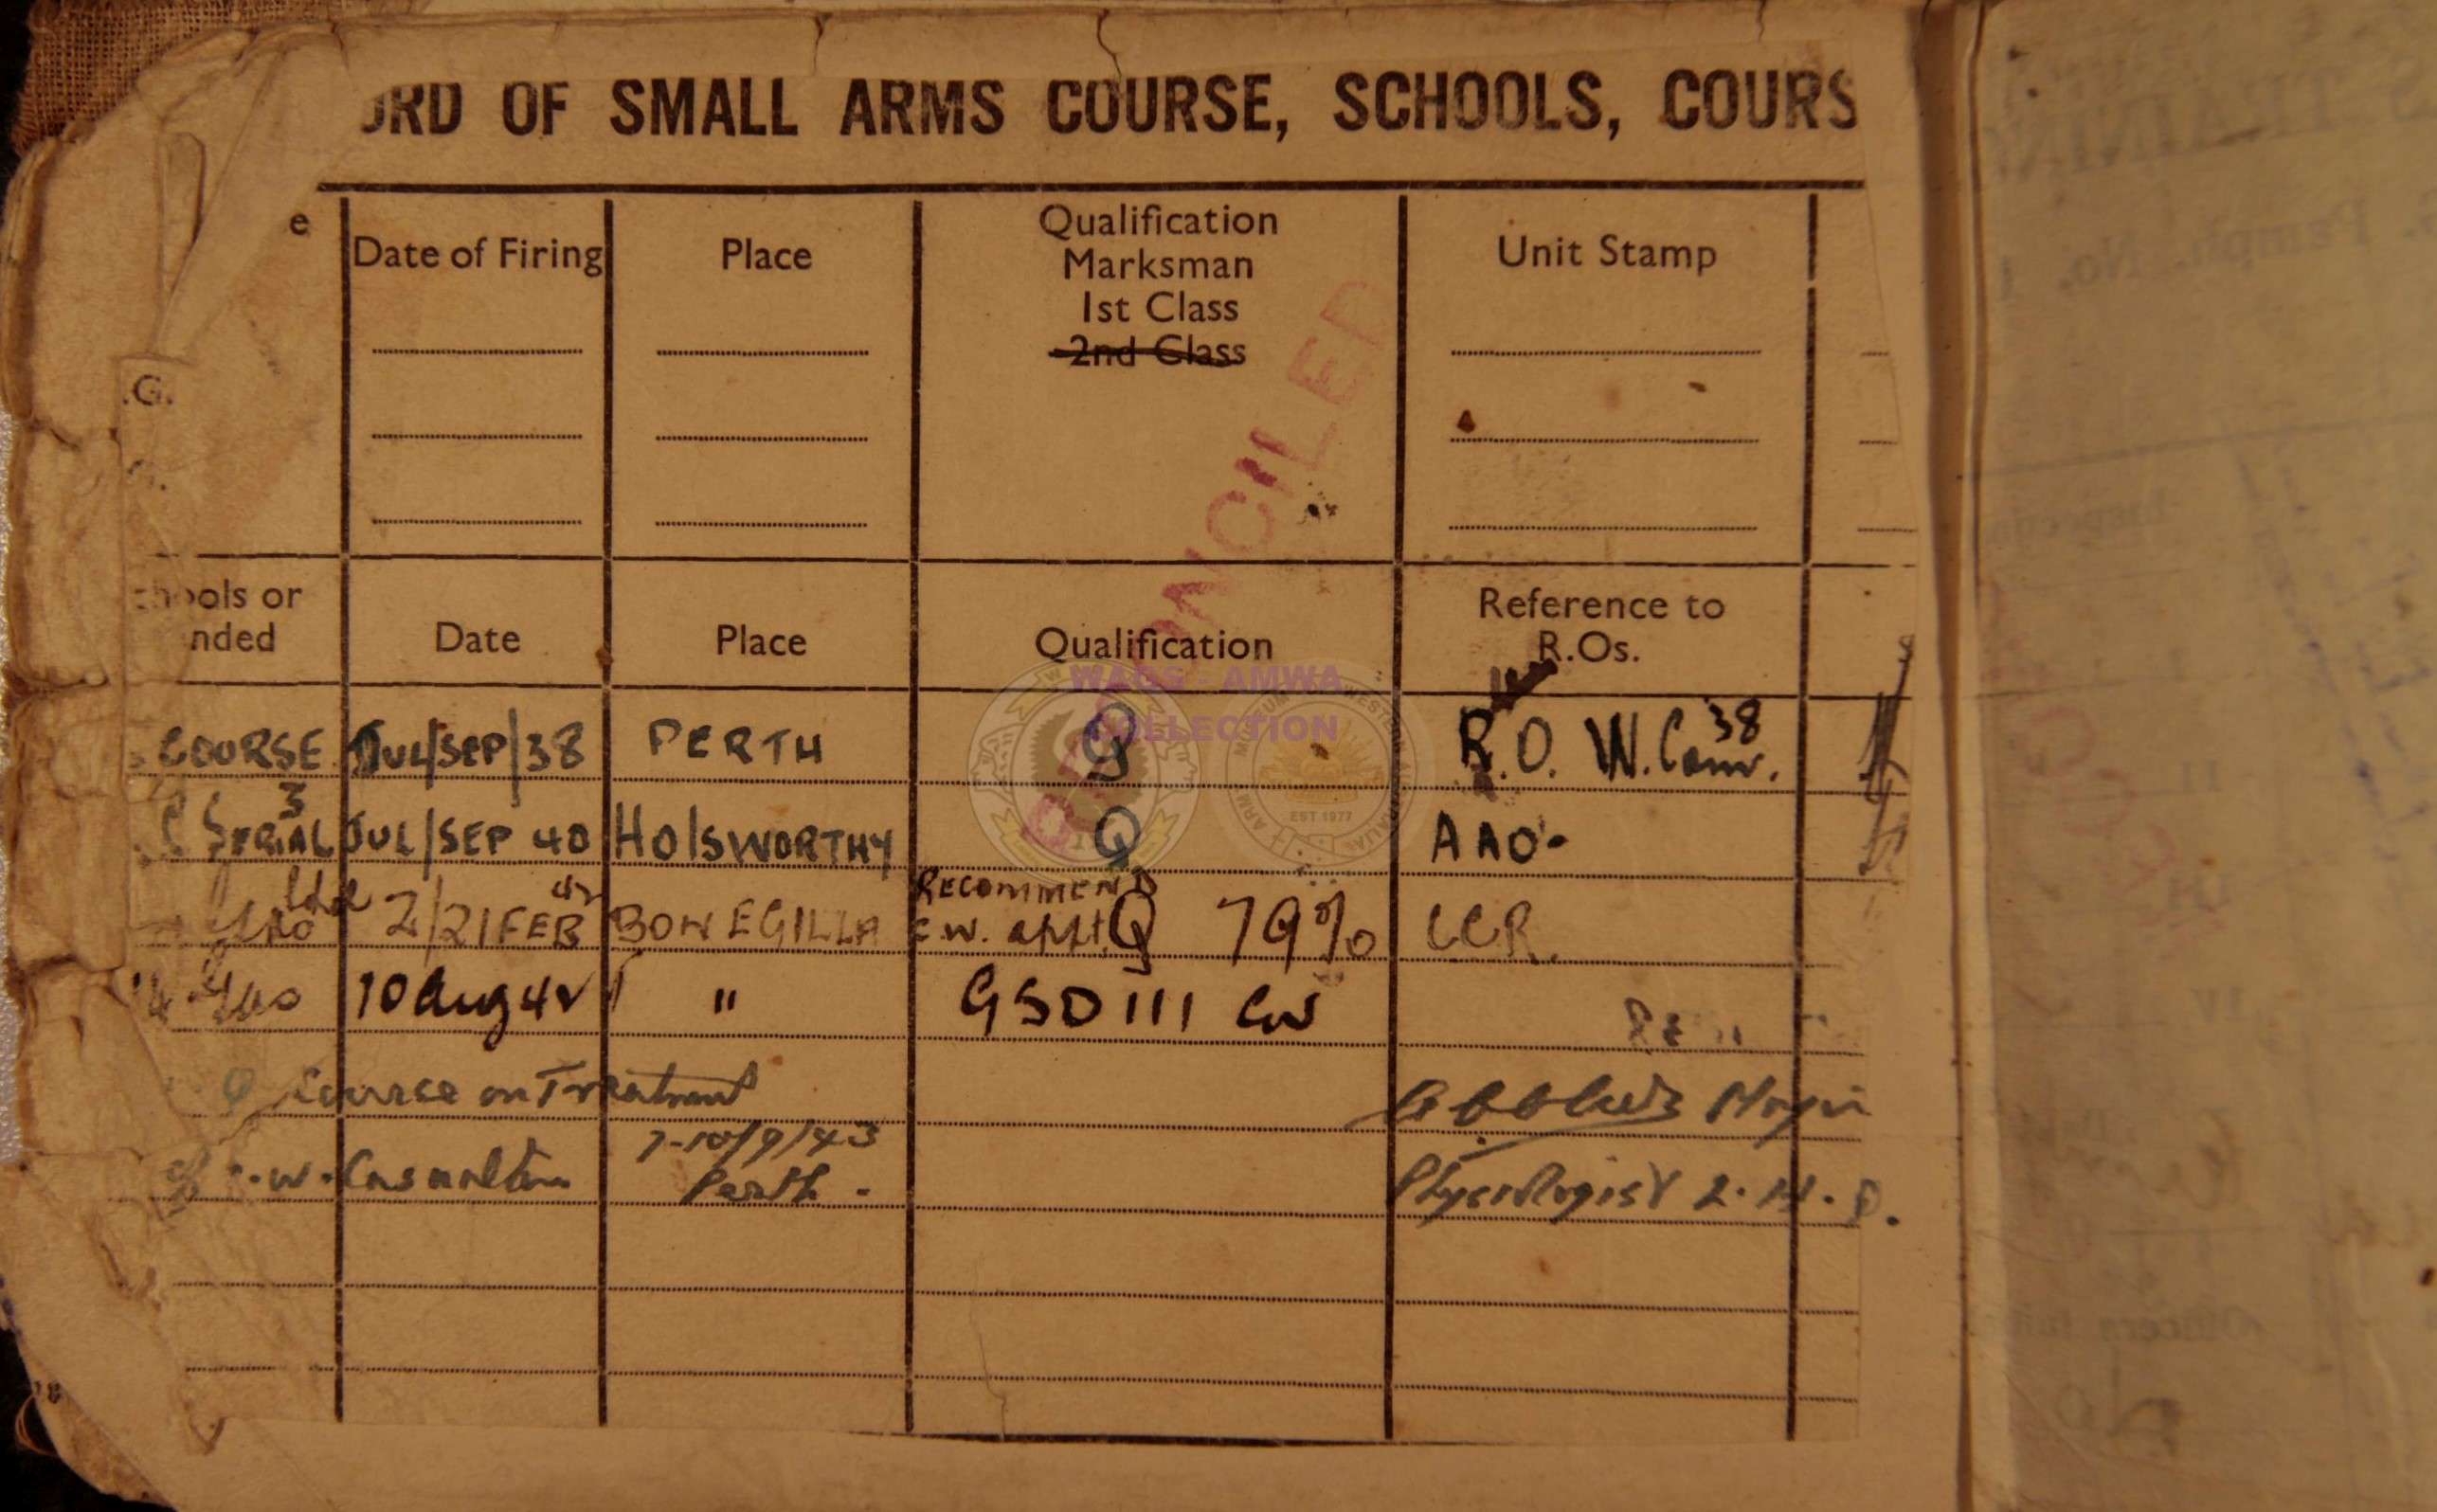 ORD OF SMALL ARMS COURSE, SCHOOLS, COURS
e Date of Firing Place Qualification Marksman 1st Class 2nd Class Unit Stamp
.G.
hools or nded Date Place Qualification Reference to R.Os.
WAGS - AMWA
COLLECTION
EST 1977
COURSE JUL/SEP/38 PERTH Q R.O. W. Com. 38
SERIAL 3 JUL/SEP 40 HOlSWORTHY Q AAO.
2/21 FEB 42 BONEGILLA RECOMMEND C.W. appt. Q 79% LCR.
Gas 10 Aug 42 " GSO III CW
Course on Treatment Major
7-10/9/43
.W. Casualties Perth. Physiologist L.H.Q.